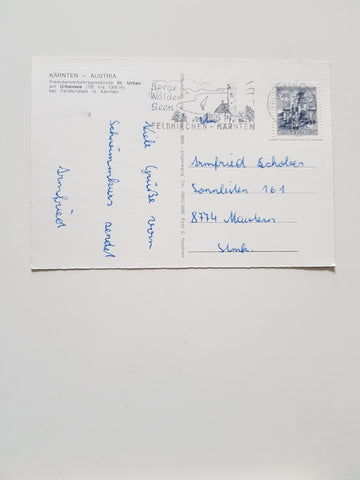 KÄRNTEN – AUSTRIA
Fremdenverkehrsgemeinde St. Urban
am Urbansee (750 bis 1300 m)
bei Feldkirchen in Kärnten
Berge
Wälder
Seen
FELDKIRCHEN-KÄRNTEN
Viele Grüße vom
Schwimmkurs sendet
Armfried
An
Armfried Scholeer
Sonnleiten 161
8774 Mautern
Stmk.